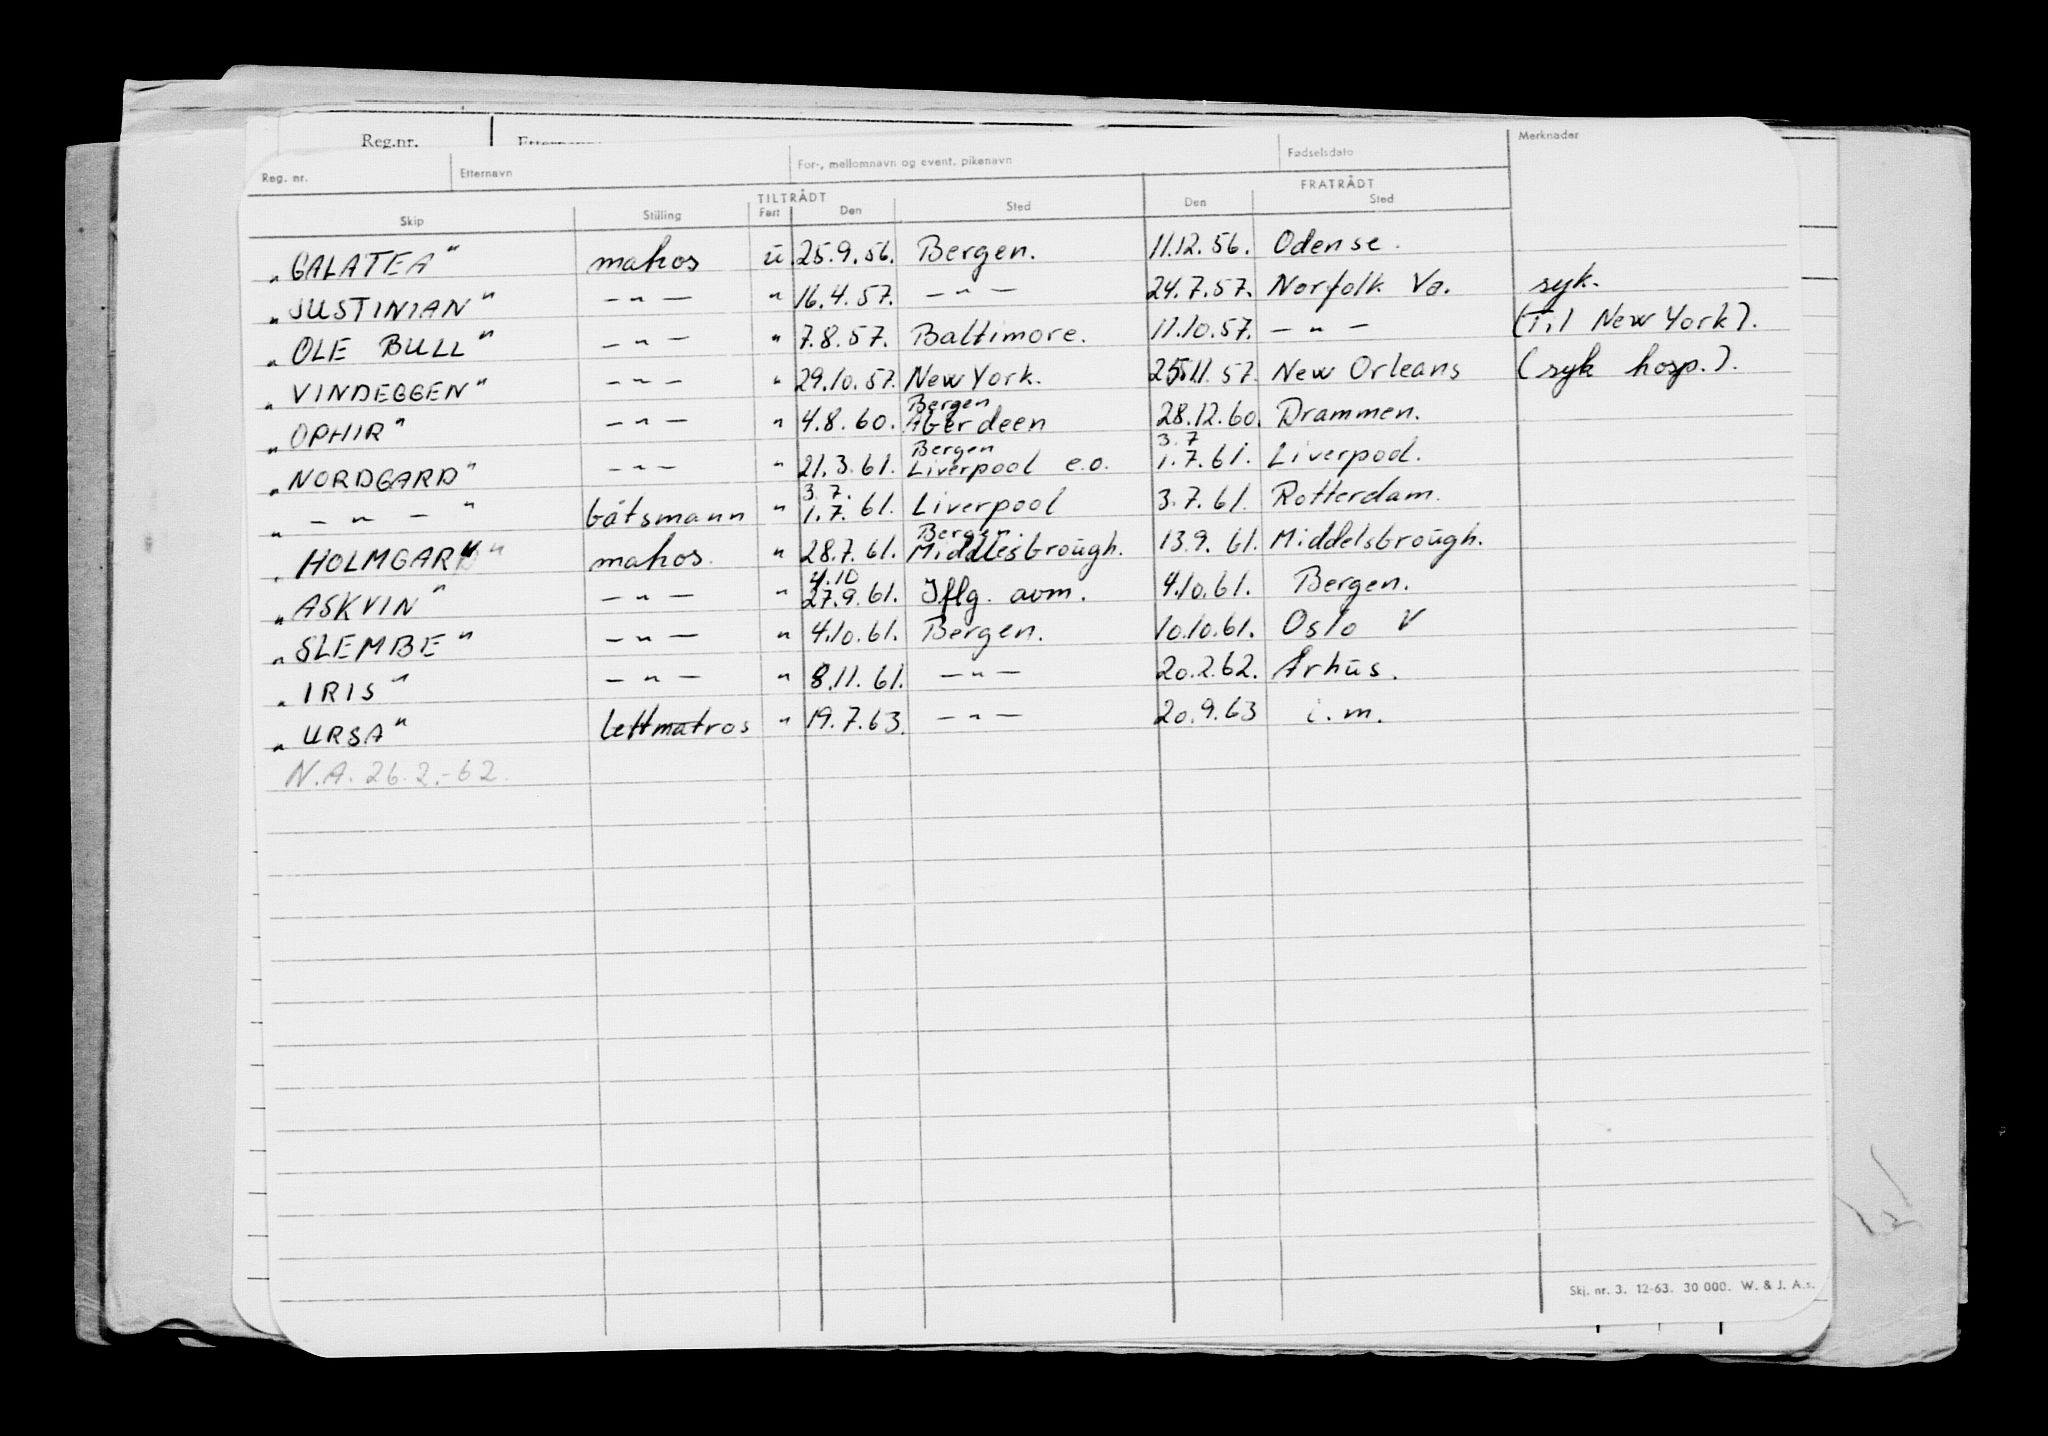 Reg.nr.
Reg. nr. Etternavn For-, mellomnavn og event. pikenavn Fødselsdato Merknader
TILTRÅDT FRATRÅDT
Skip Stilling Fart Den Sted Den Sted
"GALATEA" matros u. 25.9.56. Bergen. 11.12.56. Odense.
"JUSTINIAN" — " — " 16.4.57. — " — 24.7.57. Norfolk Va. syk.
"OLE BULL" — " — " 7.8.57. Baltimore. 11.10.57. — " — (Til New York).
"VINDEGGEN" — " — " 29.10.57. New York. 25.11.57. New Orleans (syk hosp.).
Bergen
"OPHIR" — " — " 4.8.60. Aberdeen 28.12.60. Drammen.
Bergen 3.7
"NORDGARD" — " — " 21.3.61. Liverpool e.o. 1.7.61. Liverpool.
3.7.
" — " — " båtsmann " 1.7.61. Liverpool 3.7.61. Rotterdam.
Bergen.
"HOLMGARD" matros. " 28.7.61. Middlesbrough. 13.9.61. Middelsbrough.
4.10
"ASKVIN" — " — " 27.9.61. Iflg. avm. 4.10.61. Bergen.
"SLEMBE" — " — " 4.10.61. Bergen. 10.10.61. Oslo V
"IRIS" — " — " 8.11.61. — " — 20.2.62. Århus.
"URSA" lettmatros " 19.7.63. — " — 20.9.63 i.m.
N.A. 26.2.-62.
Skj. nr. 3. 12-63. 30 000. W. & J. A.s.